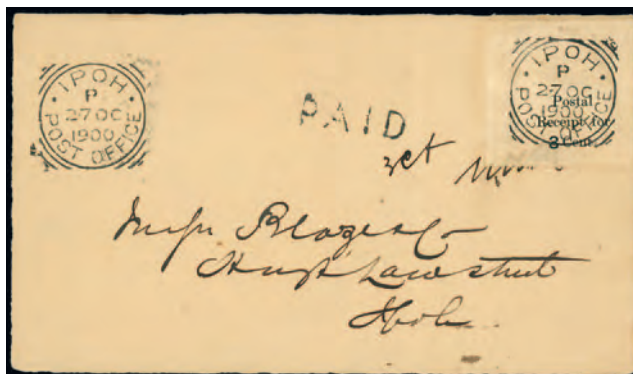 IPOH
P
27 OC
1900
POST OFFICE
IPOH
P
27 OC
1900
POST OFFICE
Postal
Receipt for
3 Cent
PAID
3ct
Hugh Law street
Ipoh